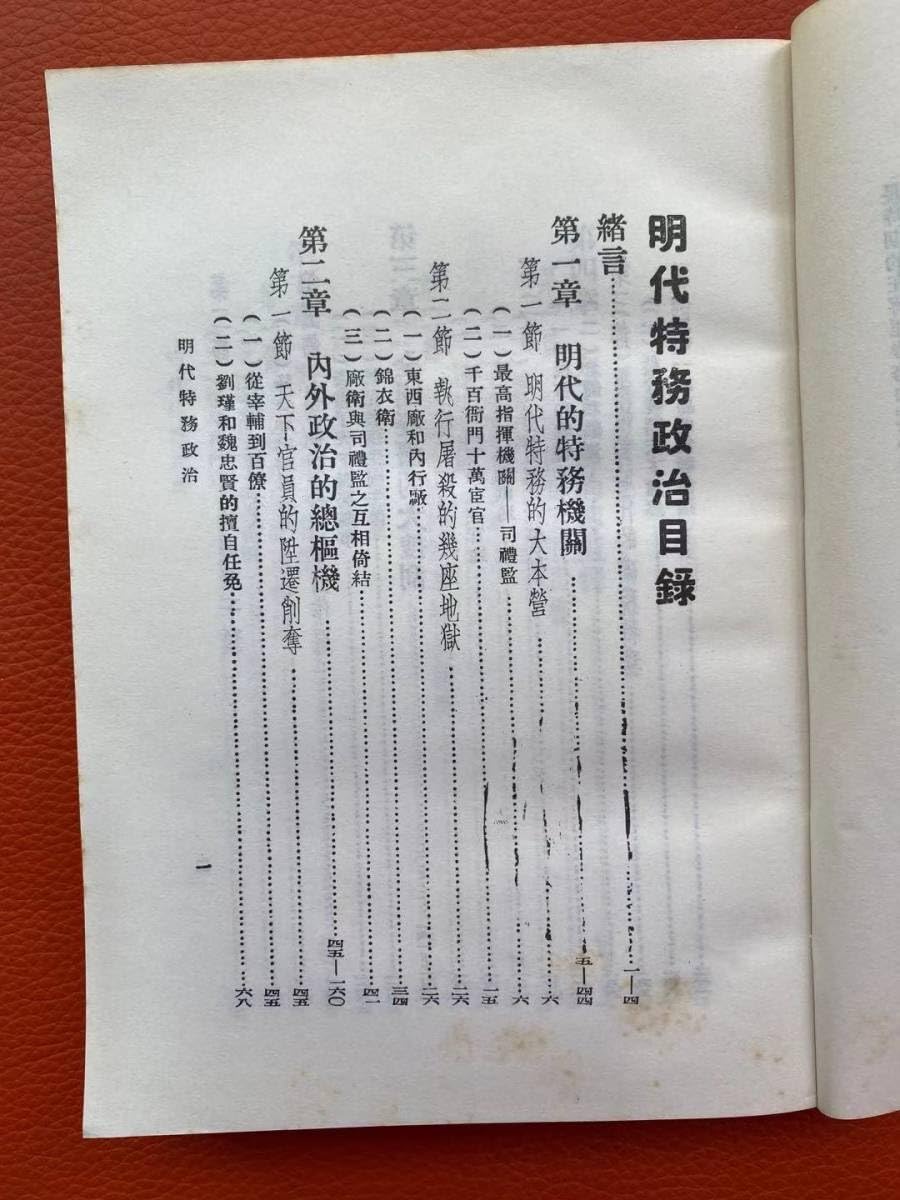 明代特務政治目錄
緒言……一—四
第一章 明代的特務機關……五—四四
第一節 明代特務的大本營……六
(一)最高指揮機關——司禮監……六
(二)千百衙門十萬宦官……一五
第二節 執行屠殺的幾座地獄……二六
(一)東西廠和內行廠……二六
(二)錦衣衛……三四
(三)廠衛與司禮監之互相倚結……四一
第二章 內外政治的總樞機……四五—一六〇
第一節 天下官員的陞遷削奪……四五
(一)從宰輔到百僚……四五
(二)劉瑾和魏忠賢的擅自任免……六八
明代特務政治
一